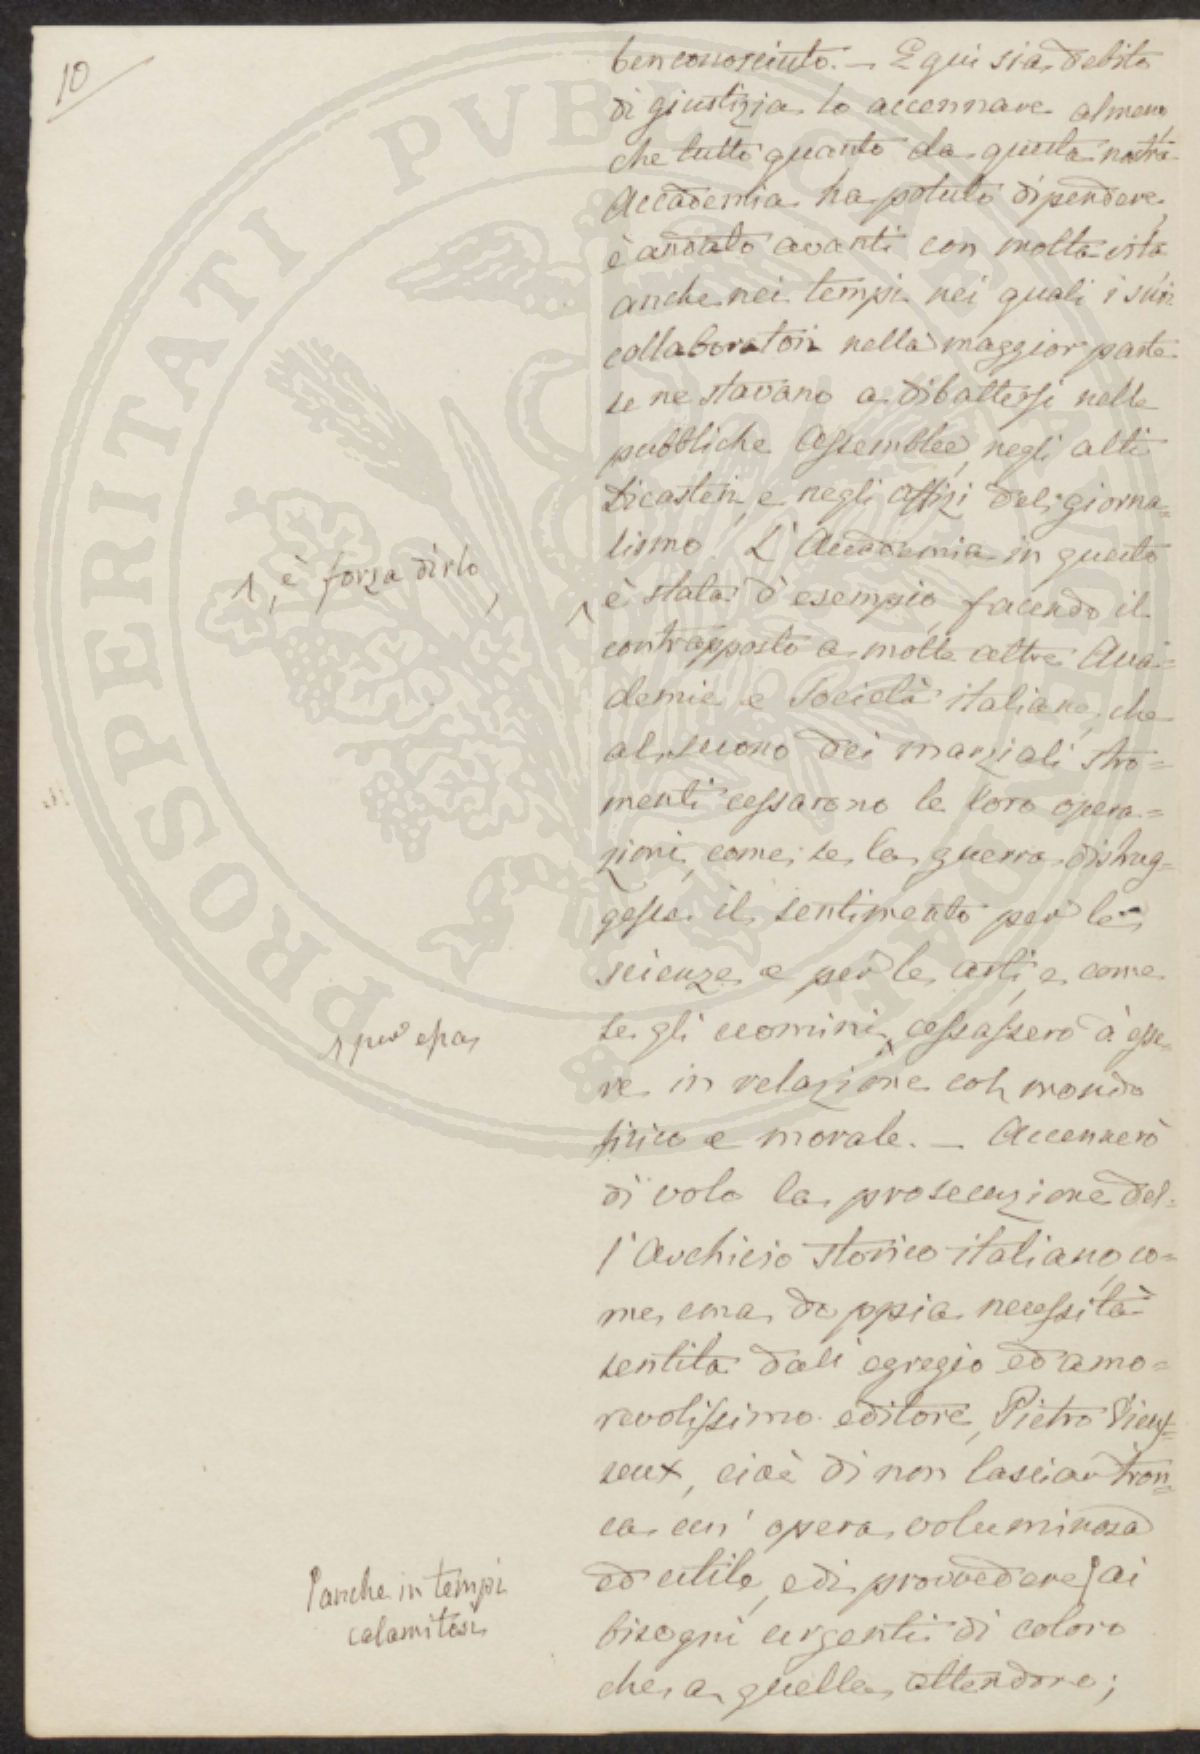 10
ben conosciuto. — E qui sia debito
di giustizia lo accennare almeno,
che tutto quanto da questa nostra
Accademia ha potuto dipendere,
è andato avanti con molta vita
anche nei tempi nei quali i suoi
collaboratori nella maggior parte
se ne stavano a dibattersi nelle
pubbliche Assemblee, negli alti
Dicasteri, e negli Uffizi del giorna=
lismo. L'Accademia in questo
^, è forza dirlo,
^ è stata d'esempio, facendo il
contrapposto a molte altre Acca=
demie e Società italiane, che
al suono dei marziali stro=
menti cessarono le loro opera=
zioni, come se la guerra distrug=
gesse il sentimento per le
scienze e per le arti, e come
se gli uomini ^ cessassero d'esse=
^ per essa
re in relazione col mondo
fisico e morale. — Accennerò
di volo la prosecuzione del=
l'Archivio storico italiano, co=
me una doppia necessità
sentita dall'egregio ed amo=
revolissimo editore, Pietro Vieus=
seux, cioè di non lasciar tron=
ca un'opera voluminosa
ed utile, e di provvedere ai
anche in tempi
calamitosi
bisogni urgenti di coloro
che a quella attendono;
PROSPERITATI PVBLICAE AVGENDAE